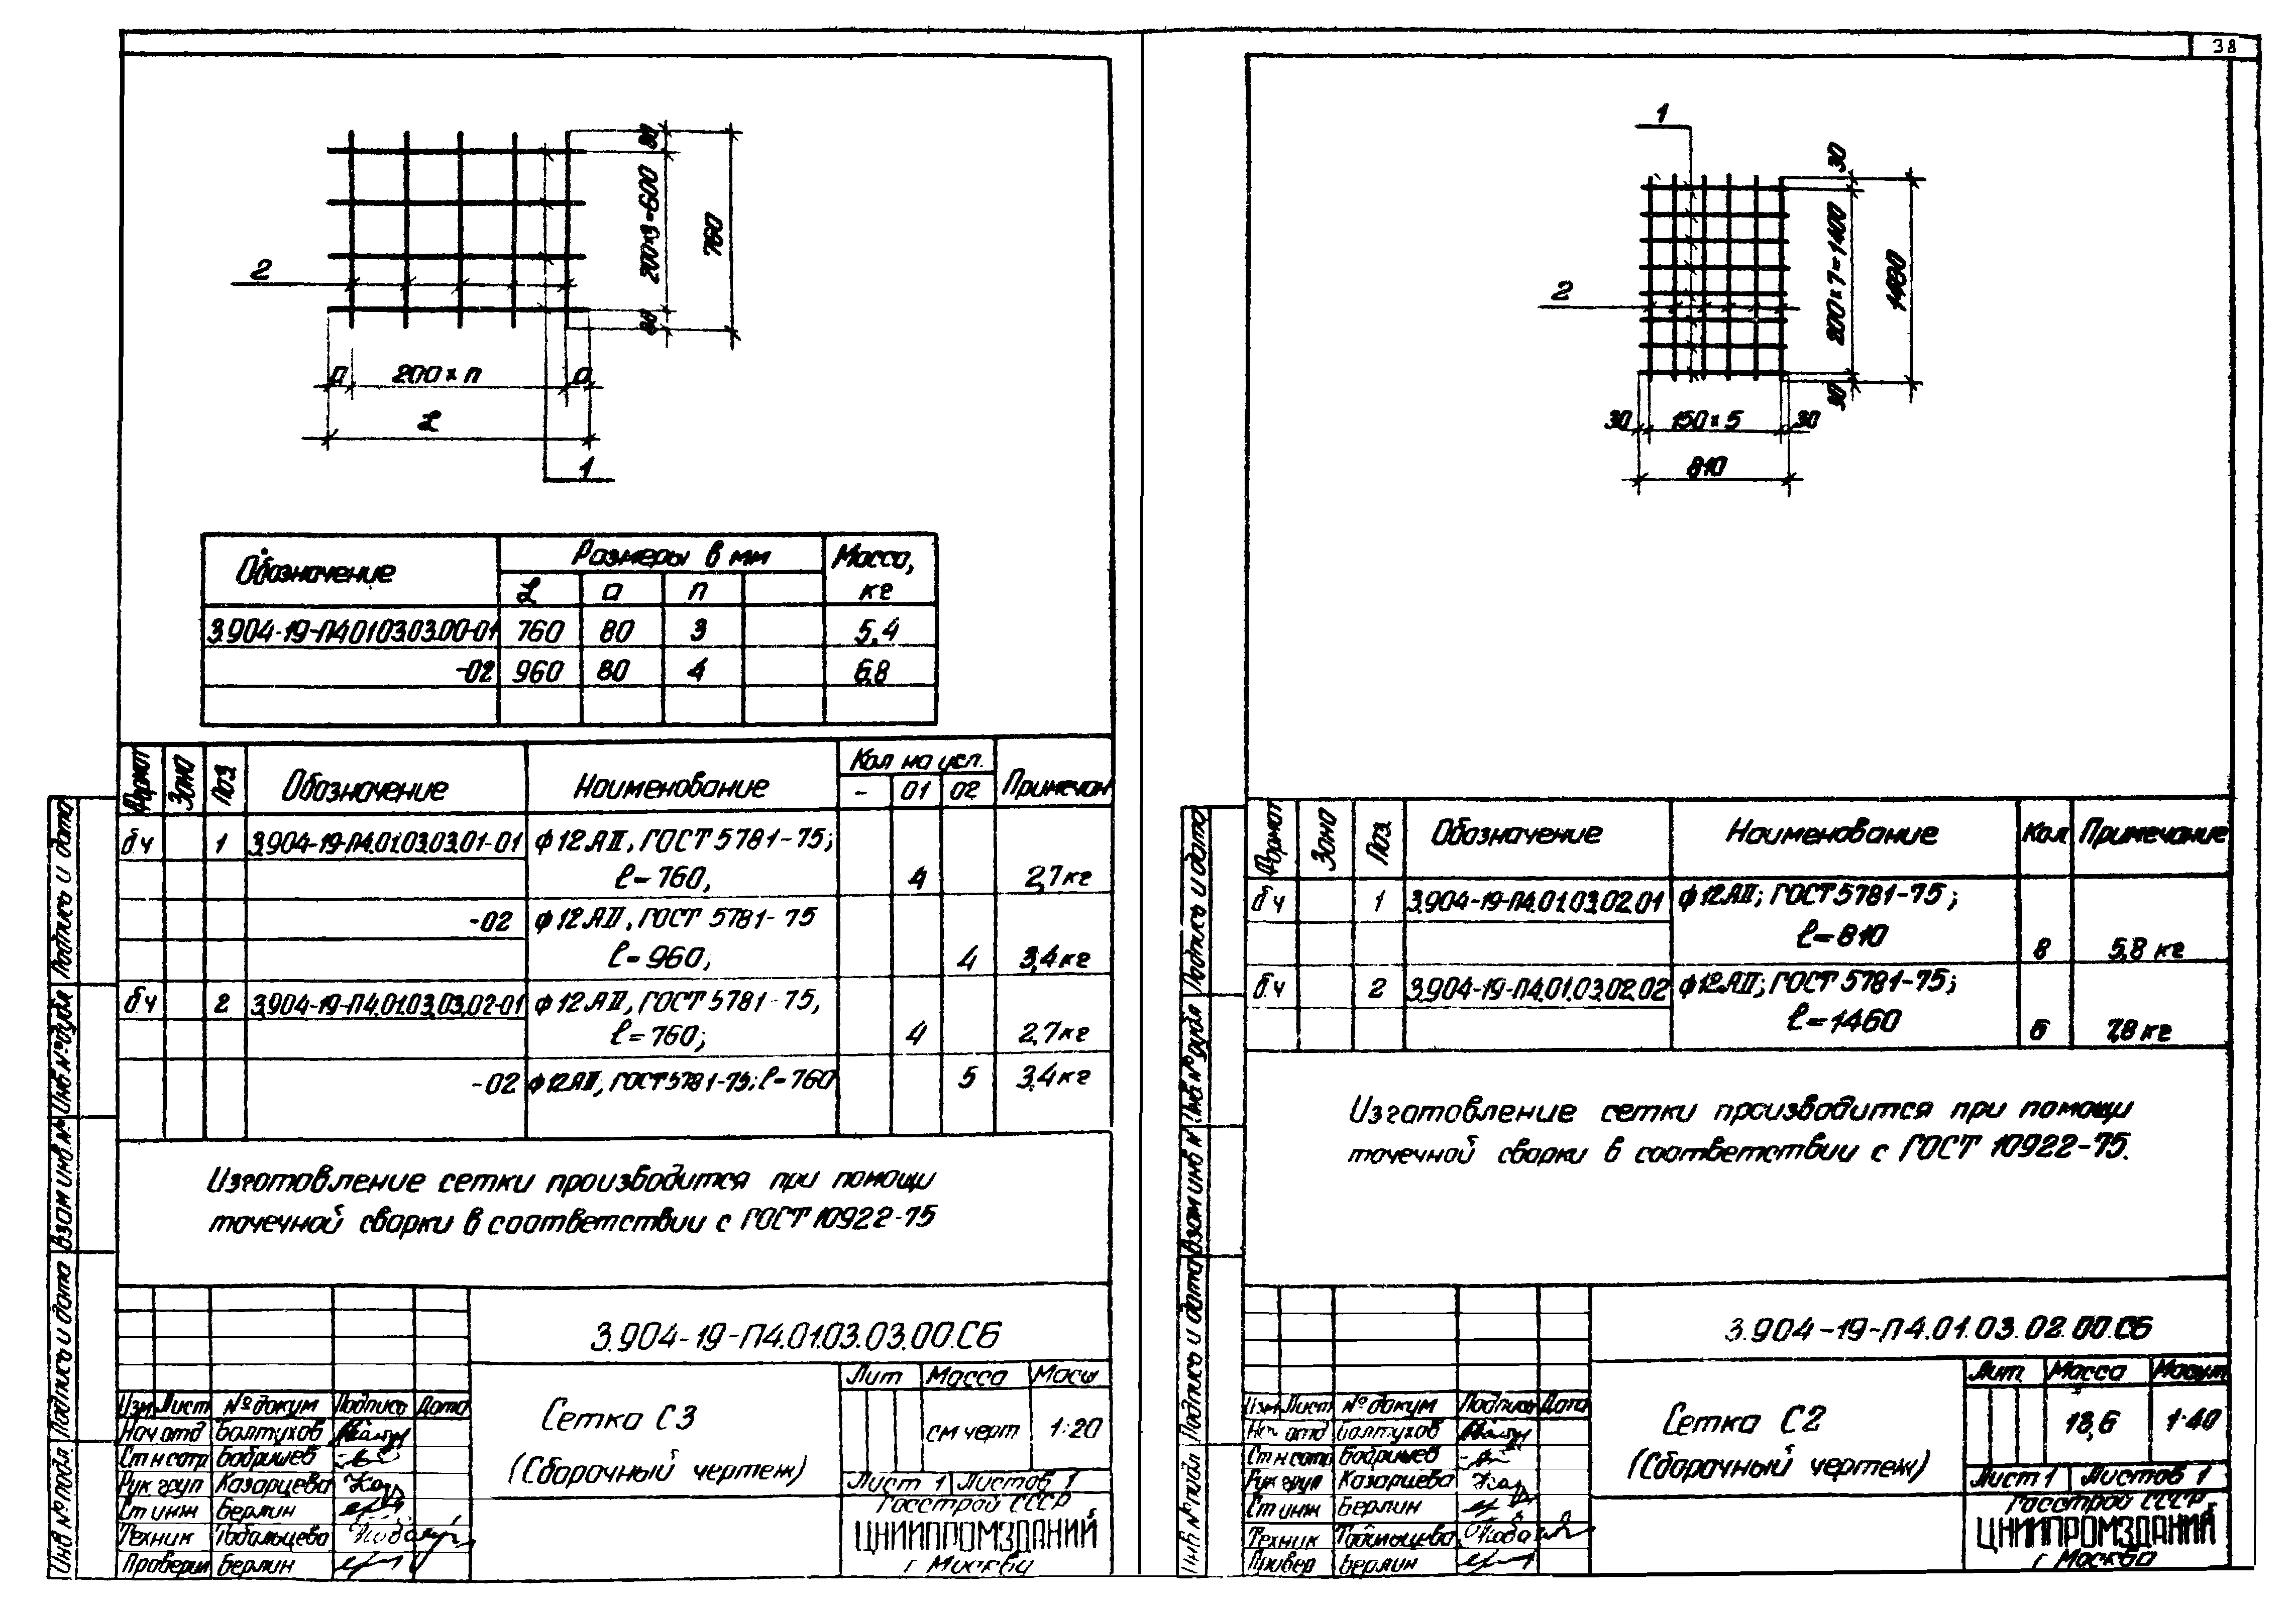 38
80
200×3=600
760
80
2
а
200 × п
а
L
1
Обозначение
Размеры в мм
Масса, кг
L
а
п
3.904-19-П4.01.03.03.00-01
760
80
3
5,4
-02
960
80
4
6,8
Формат
Зона
Поз
Обозначение
Наименование
Кол на исп.
-
01
02
Примечан
бч
1
3.904-19-П4.01.03.03.01-01
ф12АII, ГОСТ 5781-75;
ℓ=760,
4
2,7кг
-02
ф12АII, ГОСТ 5781-75
ℓ=960;
4
3,4кг
бч
2
3.904-19-П4.01.03.03.02-01
ф12АII, ГОСТ 5781-75,
ℓ=760;
4
2,7кг
-02
ф12АII, ГОСТ5781-75; ℓ=760
5
3,4кг
Изготовление сетки производится при помощи
точечной сварки в соответствии с ГОСТ 10922-75
3.904-19-П4.01.03.03.00.СБ
Сетка С3
(Сборочный чертеж)
Лит
Масса
Масш
см черт
1:20
Лист 1
Листов 1
Госстрой СССР
ЦНИИПРОМЗДАНИЙ
г Москва
Изм
Лист
№ докум
Подпись
Дата
Нач отд
Болтухов
Ст н сотр
Бобришев
Рук груп
Казарцева
Ст инж
Берлин
Техник
Проверил
Берлин
Подпись и дата
Инв № дубл
Взам инв №
Подпись и дата
Инв № подл.
1
2
30
200×7=1400
1460
30
30
150×5
30
810
Формат
Зона
Поз.
Обозначение
Наименование
Кол
Примечание
бч
1
3.904-19-П4.01.03.02.01
ф12АII; ГОСТ 5781-75;
ℓ=810
8
5,8 кг
б.ч
2
3.904-19-П4.01.03.02.02
ф12АII; ГОСТ 5781-75;
ℓ=1460
6
7,8 кг
Изготовление сетки производится при помощи
точечной сварки в соответствии с ГОСТ 10922-75.
3.904-19-П4.01.03.02.00.СБ
Сетка С2
(Сборочный чертеж)
Лит
Масса
Масшт
13,6
1:40
Лист 1
Листов 1
Госстрой СССР
ЦНИИПРОМЗДАНИЙ
г Москва
Изм
Лист
№ докум
Подпись
Дата
Нач отд
Болтухов
Ст н сотр
Бобришев
Рук груп
Казарцева
Ст инж
Берлин
Техник
Провер
Берлин
Подпись и дата
Инв № дубл
Взам инв №
Подпись и дата
Инв № подл